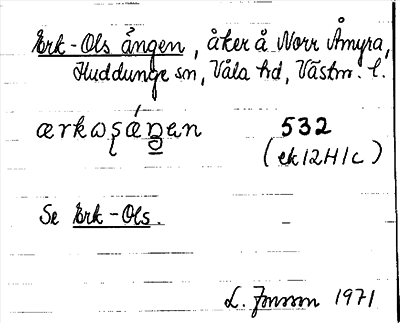 Erk-Ols ången, åker å Norr Åmyra,
Huddunge sn, Våla hd, Västm. l.
ærkωşάn̥en 532
(ek 12H1c)
Se Erk-Ols.
L. Jonsson 1971